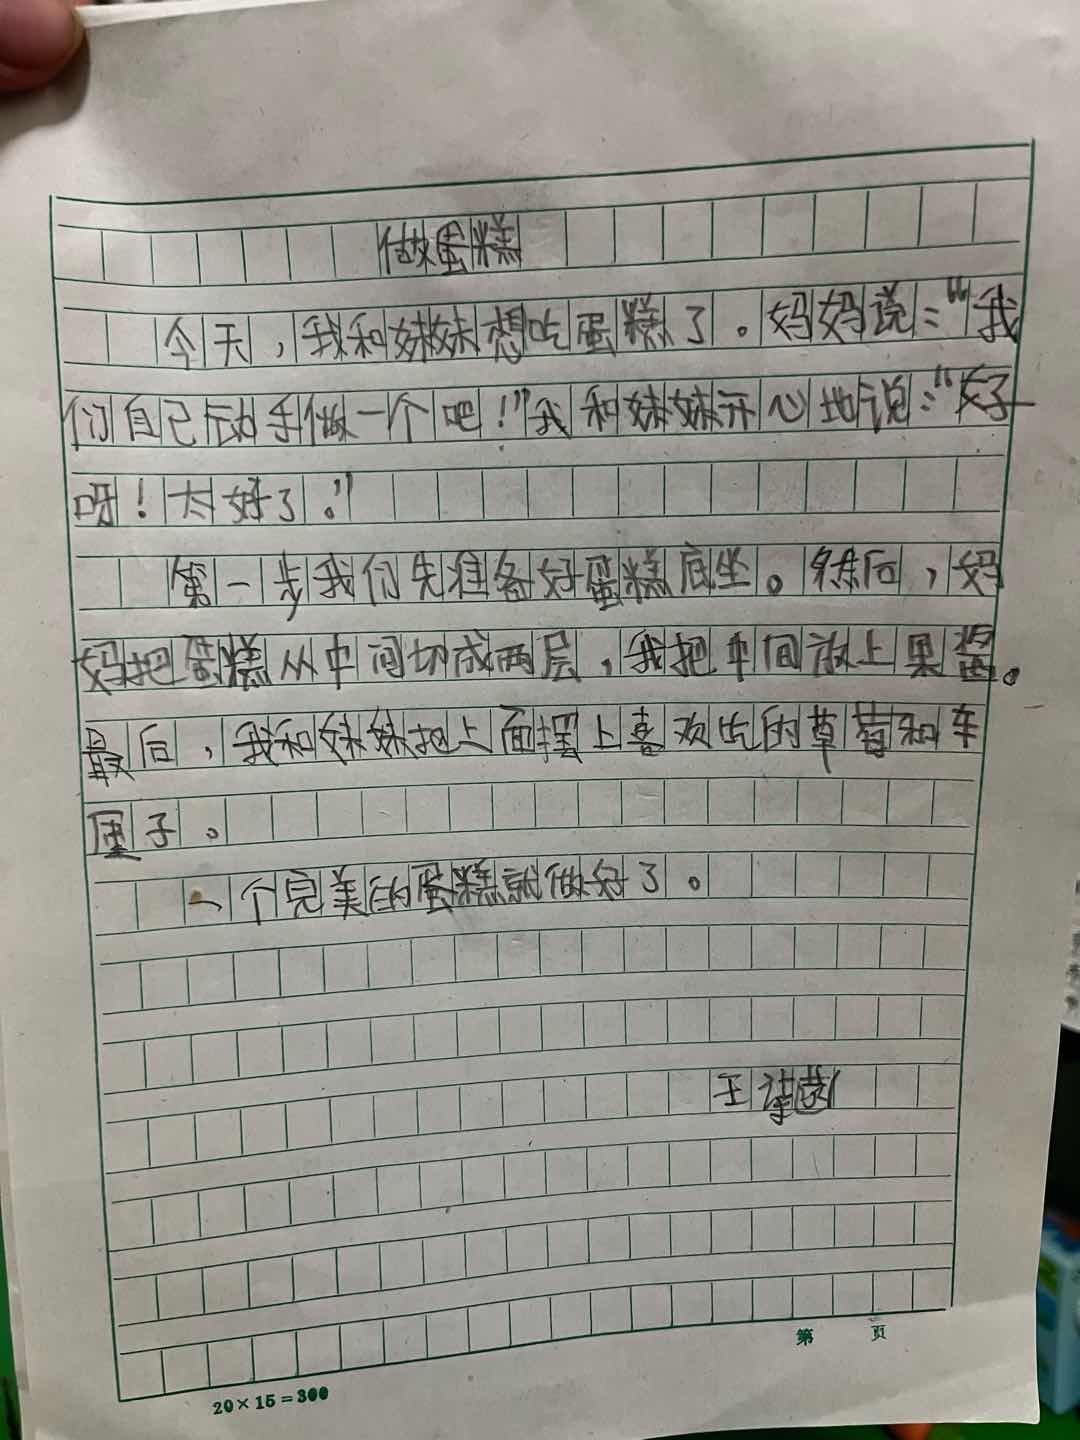 做蛋糕
今天，我和妹妹想吃蛋糕了。妈妈说：“我
们自己动手做一个吧！”我和妹妹开心地说：“好
呀！太好了。”
第一步我们先准备好蛋糕底坐。然后，妈
妈把蛋糕从中间切成两层，我把中间放上果酱。
最后，我和妹妹把上面摆上喜欢吃的草莓和车
厘子。
一个完美的蛋糕就做好了。
王诗涵
第 页
20×15=300